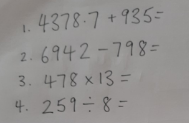 1. 4378·7 + 935=
2. 6942 − 798=
3. 478 × 13 =
4. 259 ÷ 8 =